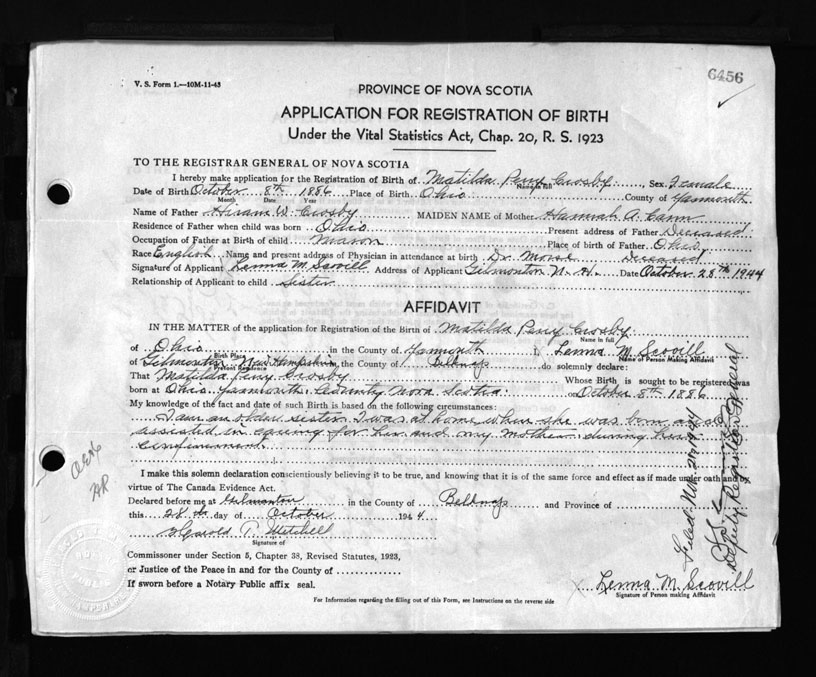 V. S. Form 1.—10M-11-43
6456
PROVINCE OF NOVA SCOTIA
APPLICATION FOR REGISTRATION OF BIRTH
Under the Vital Statistics Act, Chap. 20, R. S. 1923
TO THE REGISTRAR GENERAL OF NOVA SCOTIA
I hereby make application for the Registration of Birth of Matilda Perry Crosby Sex Female
Name in full
Date of Birth October 8th 1886 Place of Birth Ohio County of Yarmouth
Month Date Year
Name of Father Hiram W. Crosby MAIDEN NAME of Mother Hannah A. Cann
Residence of Father when child was born Ohio Present address of Father Deceased
Occupation of Father at Birth of child Mason Place of birth of Father Ohio
Race English Name and present address of Physician in attendance at birth Dr. Morse Deceased
Signature of Applicant Lenna M. Scovill Address of Applicant Gilmanton N. H. Date October 28th 1944
Relationship of Applicant to child Sister
AFFIDAVIT
IN THE MATTER of the application for Registration of the Birth of Matilda Perry Crosby
Name in full
of Ohio in the County of Yarmouth I, Lenna M. Scovill
Birth Place Name of Person Making Affidavit
of Gilmanton New Hampshire, the County of Belknap do solemnly declare:
Present Residence
That Matilda Perry Crosby Whose Birth is sought to be registered was
born at Ohio, Yarmouth County Nova Scotia. on October 8th 1886
My knowledge of the fact and date of such Birth is based on the following circumstances:
I am an older sister. I was at home when she was born and
assisted in caring for her and my mother during her
confinement.
I make this solemn declaration conscientiously believing it to be true, and knowing that it is of the same force and effect as if made under oath and by
virtue of The Canada Evidence Act.
Declared before me at Gilmanton in the County of Belknap and Province of
this 28th day of October 1944
Harold P. Mitchell
Signature of
Commissioner under Section 5, Chapter 38, Revised Statutes, 1923,
or Justice of the Peace in and for the County of
If sworn before a Notary Public affix seal.
Lenna M. Scovill
Signature of Person making Affidavit
For Information regarding the filling out of this Form, see Instructions on the reverse side
Filed Nov 21, 1944
Deputy Registrar General